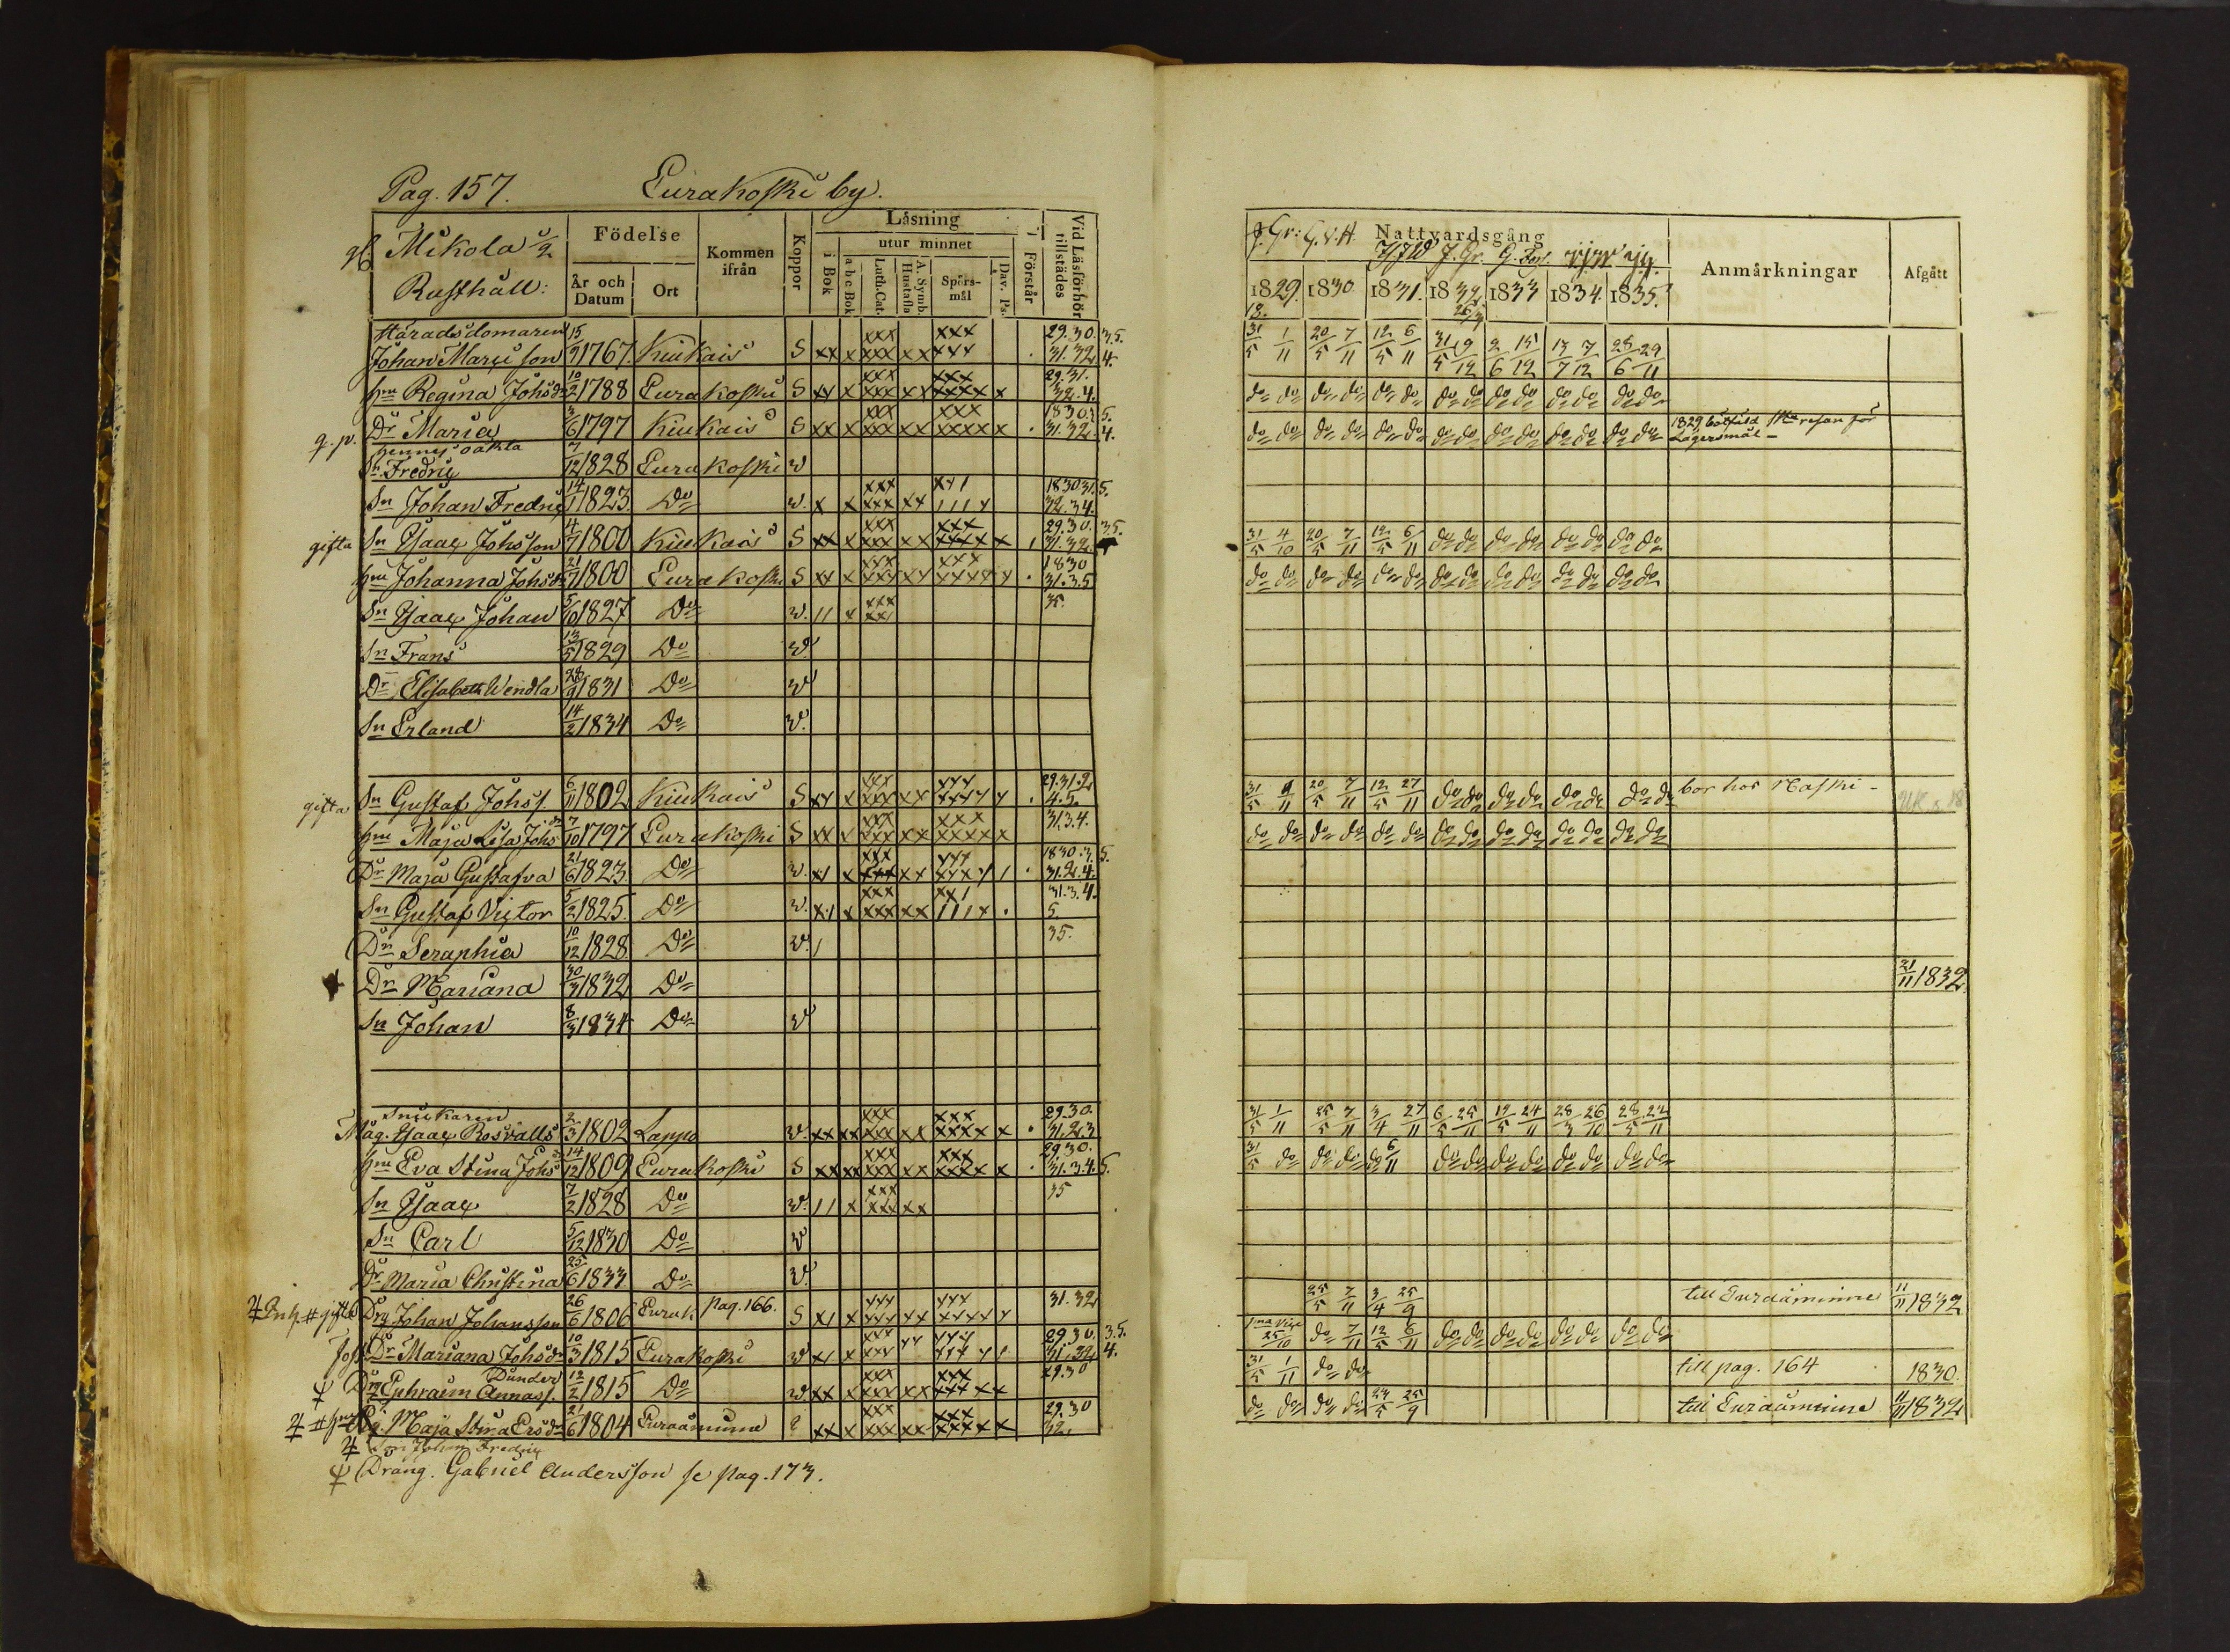 Pag. 157. Eurakoski by.
Mikola 1/2
Rusthåll:
Födelse
År och Datum
Ort
Kommen ifrån
Koppor
Läsning
i Bok
utur minnet
a b c Bok
Luth. Cat.
A. Symb. Hustafla
Spörs-mål
Dav. Ps.
Förstår
Vid Läsförhör tillstädes
Nattvardsgång
1829. 1830 1831. 1832 1833 1834. 1835.
Anmärkningar
Afgått
Häradsdomaren
Johan Marc:son 15/9 1767 Kiukais S xx x xxx xx xxx 29.30. 35. 31.32. 4. 31/5 1/11 20/5 7/11 12/5 6/11 31/5 9/12 2/6 15/12 13/7 7/12 28/6 29/11
Hru Regina Johsdr 10/2 1788 Eurakoski S xx x xxx xx xxxxx x 29.31. 32.4. do do do do do do do do do do do do do do
q. p. Dr Maria 3/6 1797 Kiukais S xx x xxx xx xxxxx x 1830.3. 5. 31.32. 4. do do do do do do do do do do do do do do 1829 bötfäld 1sta resan för Lägersmål
hennes oäkta
Sn Fredric 7/12 1828 Eurakoski v
Sn Johan Fredric 14/1 1823 Do v. x x xxx xx 1830 31. 5. 32.34.
gifta Sn Isaac Johsson 4/7 1800 Kiukais S xx x xxx xx xxxxx x 29.30. 35. 31.32. 31/5 4/10 20/5 7/11 12/5 6/11 do do do do do do do do
Hru Johanna Johsdr 21/7 1800 Eurakoski S xx x xxx xx xxxxx x 1830 31.3.5 do do do do do do do do do do do do do do
Sn Isaac Johan 5/10 1827 Do v. 11 x xxx 35.
Sn Frans 13/5 1829 Do v.
Dr Elisabeth Wendla 28/9 1831 Do v
Sn Erland 14/2 1834 Do v.
gifta Sn Gustaf Johss. 6/11 1802 Kiukais S xx x xxx xx xxxx x 29.31.2 4.5. 31/5 9/11 20/5 7/11 12/5 27/11 do do do do do do do do bor hos Raski -
Hru Maja Lisa Johsdr 7/10 1797 Eurakoski S xx x xxx xx xxxxx 31.3.4. do do do do do do do do do do do do do do
Dr Maja Gustafva 21/6 1823. Do v. x1 x xxx xx xxx 1830.3. 5. 31.2.4.
Sn Gustaf Victor 5/2 1825. Do v. x1 x xxx xx 111x 31.3.4. 5.
Dr Seraphia 10/12 1828 Do v. 1 35.
Dr Mariana 30/3 1832 Do 21/11 1832.
Sn Johan 8/3 1834 Do v
Snickaren
Måg. Isaac Rosvalls 2/3 1802 Lappo v. xx xx xxx xx xxxxx x 29.30. 31.2.3 31/5 1/11 25/5 7/11 3/4 27/11 6/5 25/11 12/5 24/11 28/3 26/10 28/5 22/11
Hru Eva Stina Johsdr 14/12 1809 Eurakoski S xx xx xxx xx xxxxx x 29.30. 31.3.4. 5. 31/5 do do do do 6/11 do do do do do do do do
Sn Isaac 7/2 1828 Do v. 11 x xxx xx 35
Sn Carl 5/12 1830 Do v
Dr Maria Christina 25/6 1833 Do v.
gifta Drg Johan Johansson 26/6 1806 Eurak pag. 166. S x1 x xxx xx xxxx x 31.32 25/5 7/11 3/4 25/9 till Euraåminne 11/11 1832
Dr Mariana Johsdr 10/3 1815 Eurakoski v x1 x xxx xx xxx 29.30. 35. 31.32 4. 1ma vice 25/10 do 7/11 12/5 6/11 do do do do do do do do
Dunder
Drg Ephraim Annass. 12/2 1815 Do v. xx x xxx xx xxx xx 29.30 31/5 1/11 do do till pag. 164 1830.
Maja Stina Ersdr 21/6 1804 Euraåminne xx x xxx xx xxxxx x 29.30 32. do do do do 23/5 25/9 till Euraåminne 11/11 1832
Son Johan Fredric
Dräng. Gabriel Andersson se pag. 173.